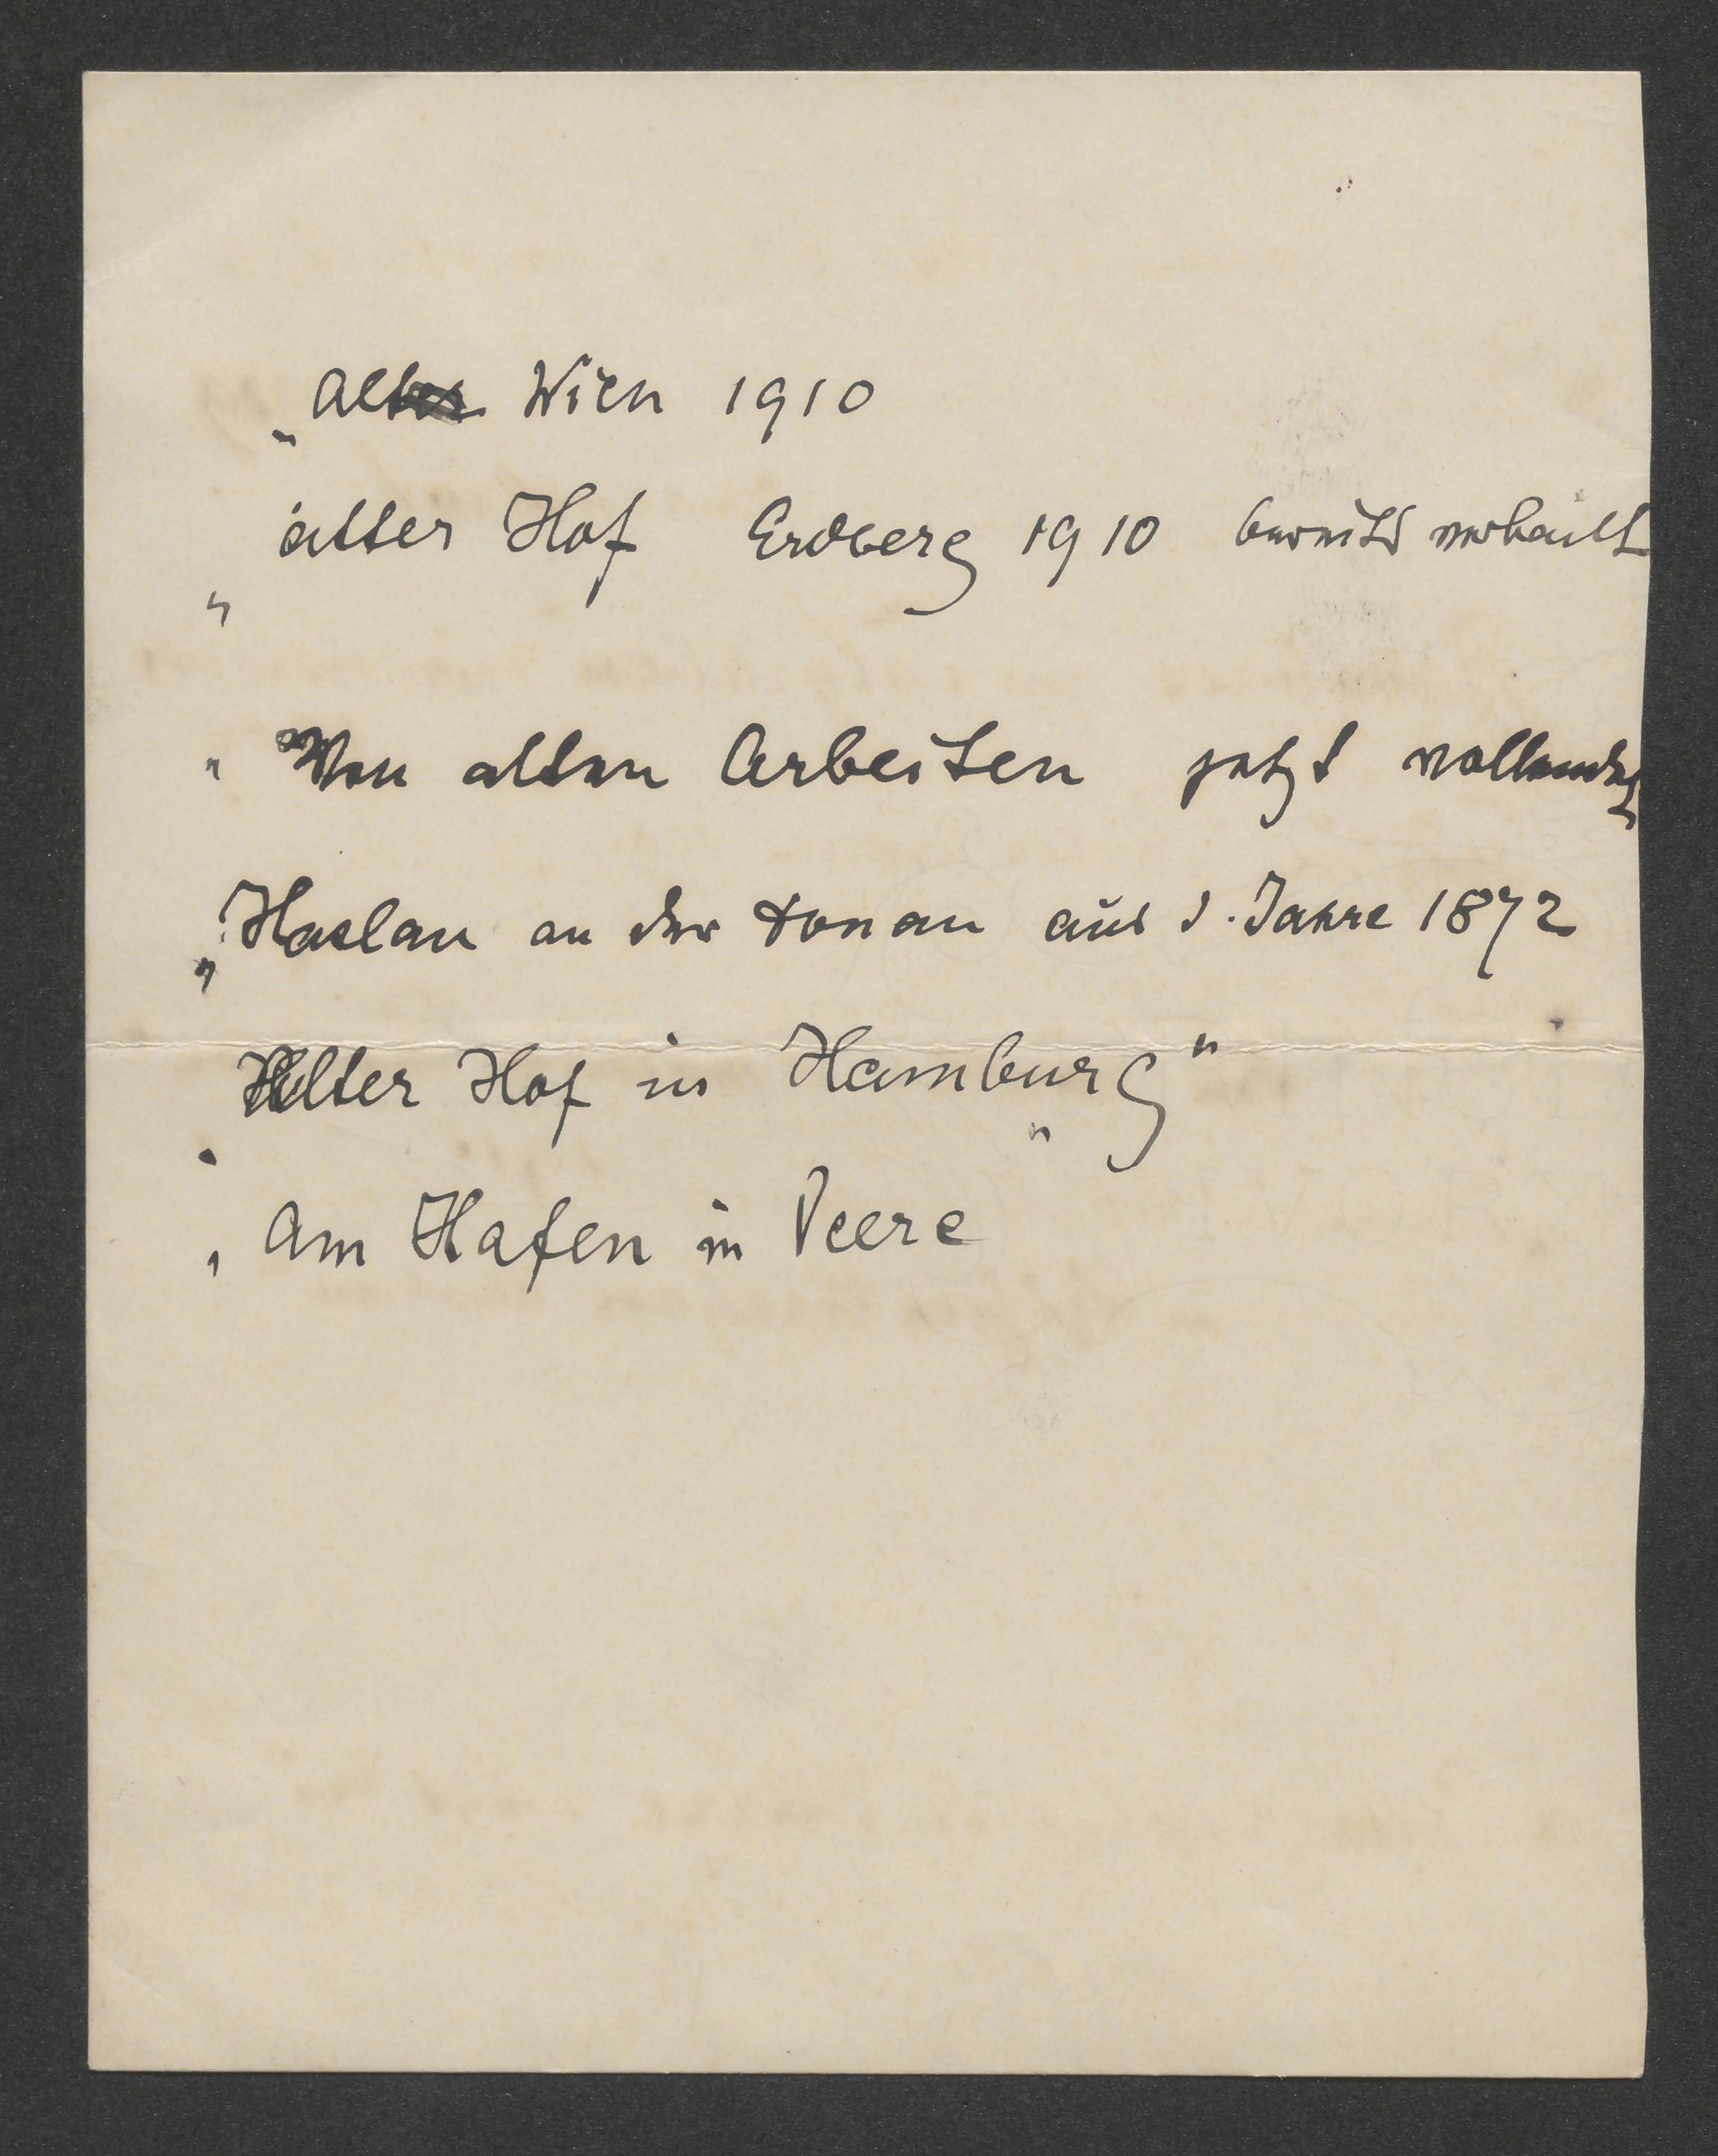 „Alt Wien 1910
alter Hof Erdberg 1910 bereits verbaut
"
" Von alten Arbeiten jetzt vollendet
„Haslau an der Donau aus d. Jahre 1872
Alter Hof in Hamburg"
" Am Hafen in Veere "